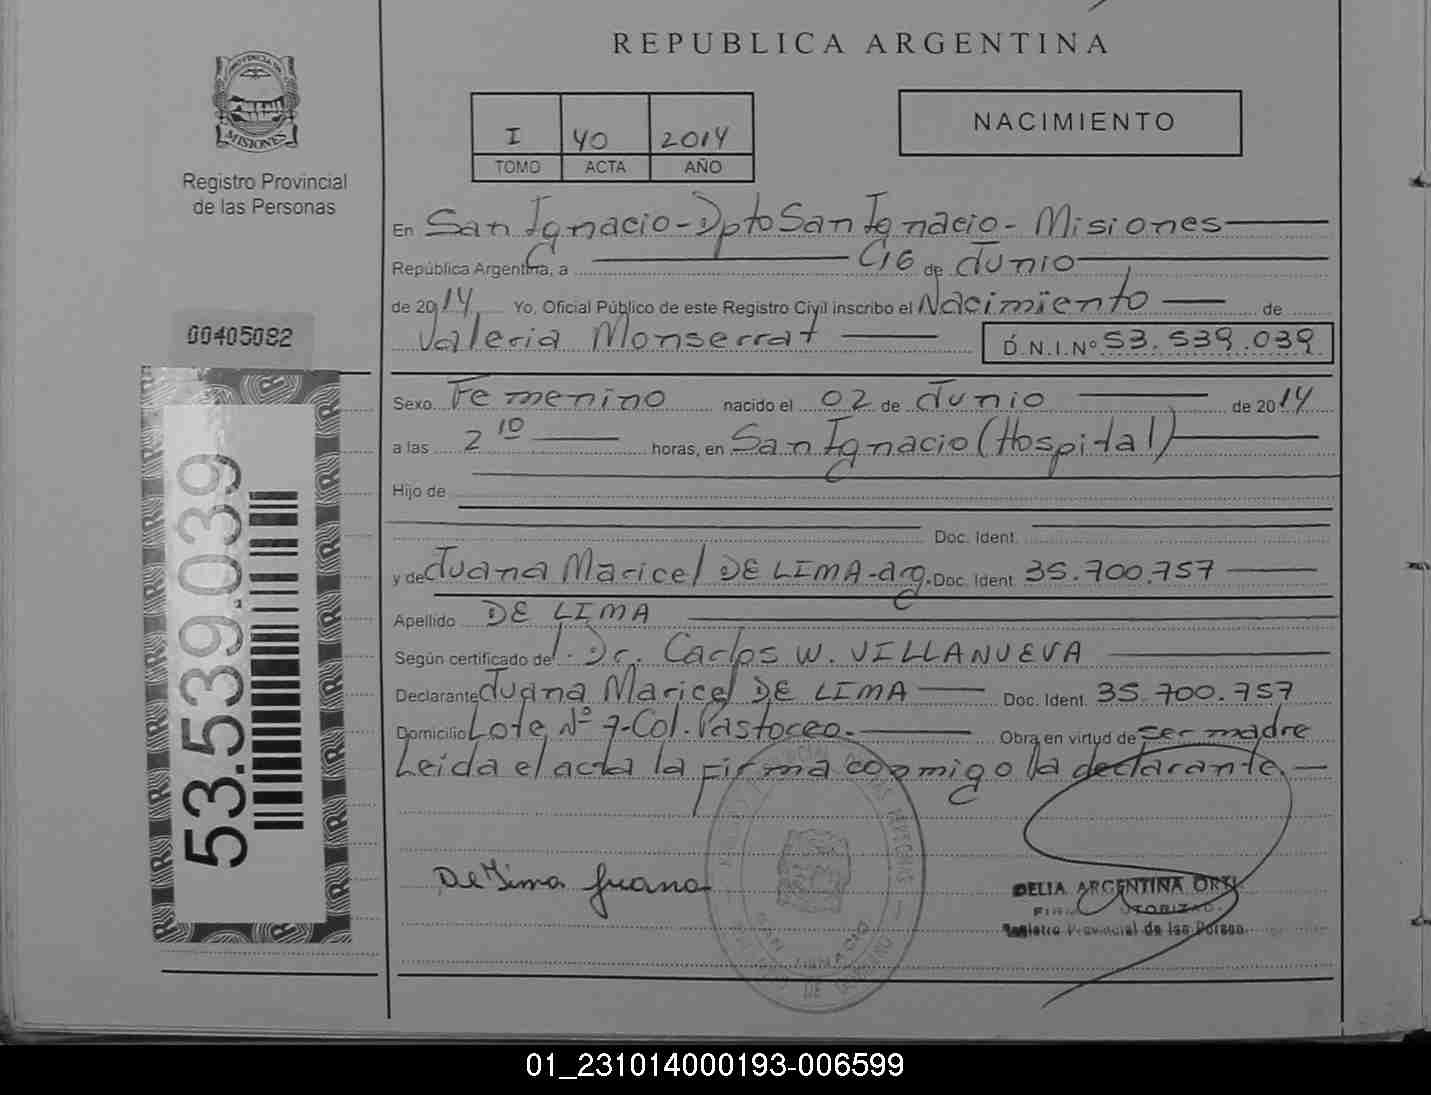 REPUBLICA ARGENTINA
PROVINCIA DE
MISIONES
Registro Provincial
de las Personas
I 40 2014
TOMO ACTA AÑO
NACIMIENTO
En San Ignacio - Dpto San Ignacio - Misiones
República Argentina, a 06 de Junio
de 2014 Yo, Oficial Público de este Registro Civil inscribo el Nacimiento de
Valeria Monserrat D.N.I.Nº 53.539.039
00405082
Sexo Femenino nacido el 02 de Junio de 2014
a las 2 10 horas, en San Ignacio (Hospital)
Hijo de
Doc. Ident.
y de Juana Maricel DE LIMA - arg. Doc. Ident. 35.700.757
Apellido DE LIMA
Según certificado del Dr. Carlos W. VILLANUEVA
Declarante Juana Maricel DE LIMA Doc. Ident. 35.700.757
Domicilio Lote Nº 7 - Col. Pastoreo. Obra en virtud de ser madre
Leida el acta la firma conmigo la declarante.
53.539.039
De Lima Juana
DELIA ARGENTINA
Registro Provincial de las
SAN IGNACIO
01_231014000193-006599